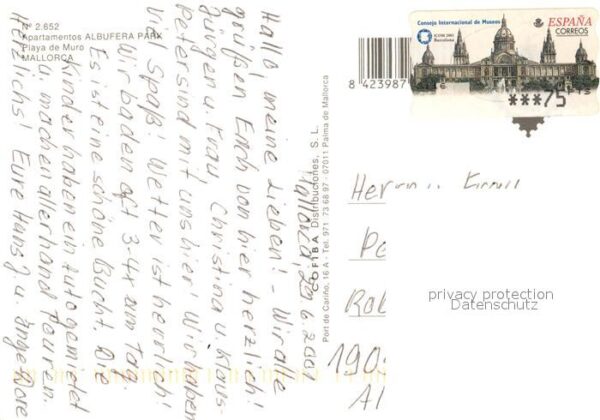 Nº 2.652
Apartamentos ALBUFERA PARK
Playa de Muro
MALLORCA
Mallorca, 20.6.200
Hallo, meine Lieben! - Wir alle
grüßen Euch von hier herzlich!
Jürgen u. Frau, Christina u. Klaus-
Peter sind mit uns hier! Wir haben
viel Spaß! Wetter ist herrlich!
Wir baden oft 3-4x am Tag.
Es ist eine schöne Bucht. Die
Kinder haben ein Auto gemietet
u. machen allerhand Touren.
Herzlichst Eure Hans J. u. Inge Dore
COFIBA Distribuciones, S. L.
Port de Cariño, 16 A - Tel. 971 73 68 97 - 07011 Palma de Mallorca
8 423987
Consejo Internacional de Museos
ICOM 2001
Barcelona
ESPAÑA
CORREOS
***75
Herrn u.
Pe
Rob
190
Al
privacy protection
Datenschutz